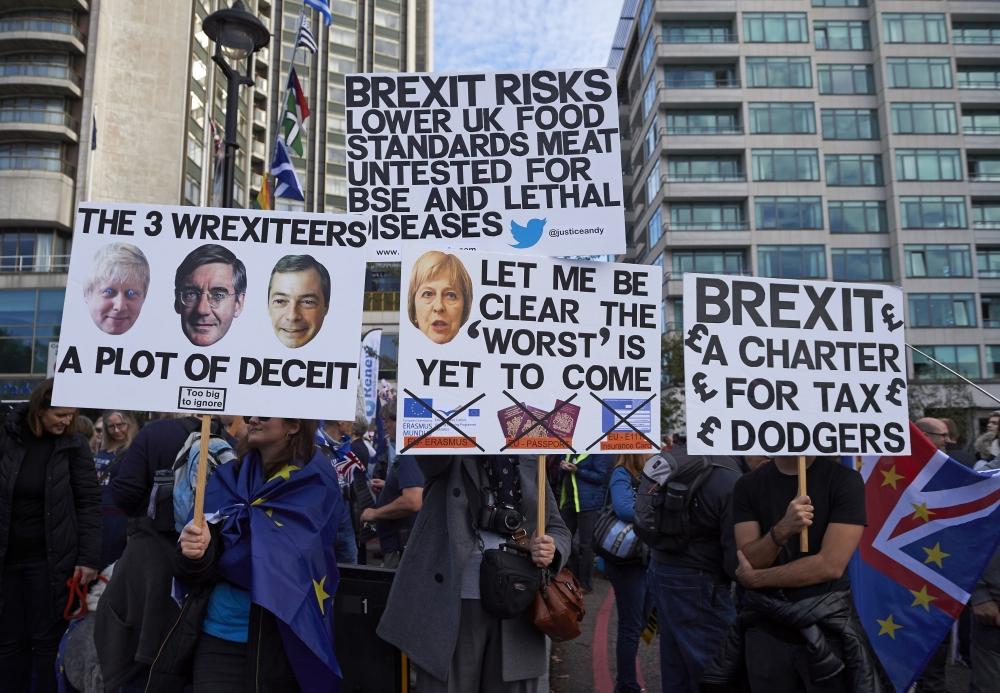 BREXIT RISKS
LOWER UK FOOD
STANDARDS MEAT
UNTESTED FOR
BSE AND LETHAL
ISEASES
@justiceandy
www.
THE 3 WREXITEERS
A PLOT OF DECEIT
Too big
to ignore
LET ME BE
CLEAR THE
'WORST' IS
YET TO COME
EU- ERASMUS
EU - PASSPORT
EU - E111
Insurance Card
BREXIT£
£A CHARTER
£ FOR TAX£
£ DODGERS
Rene